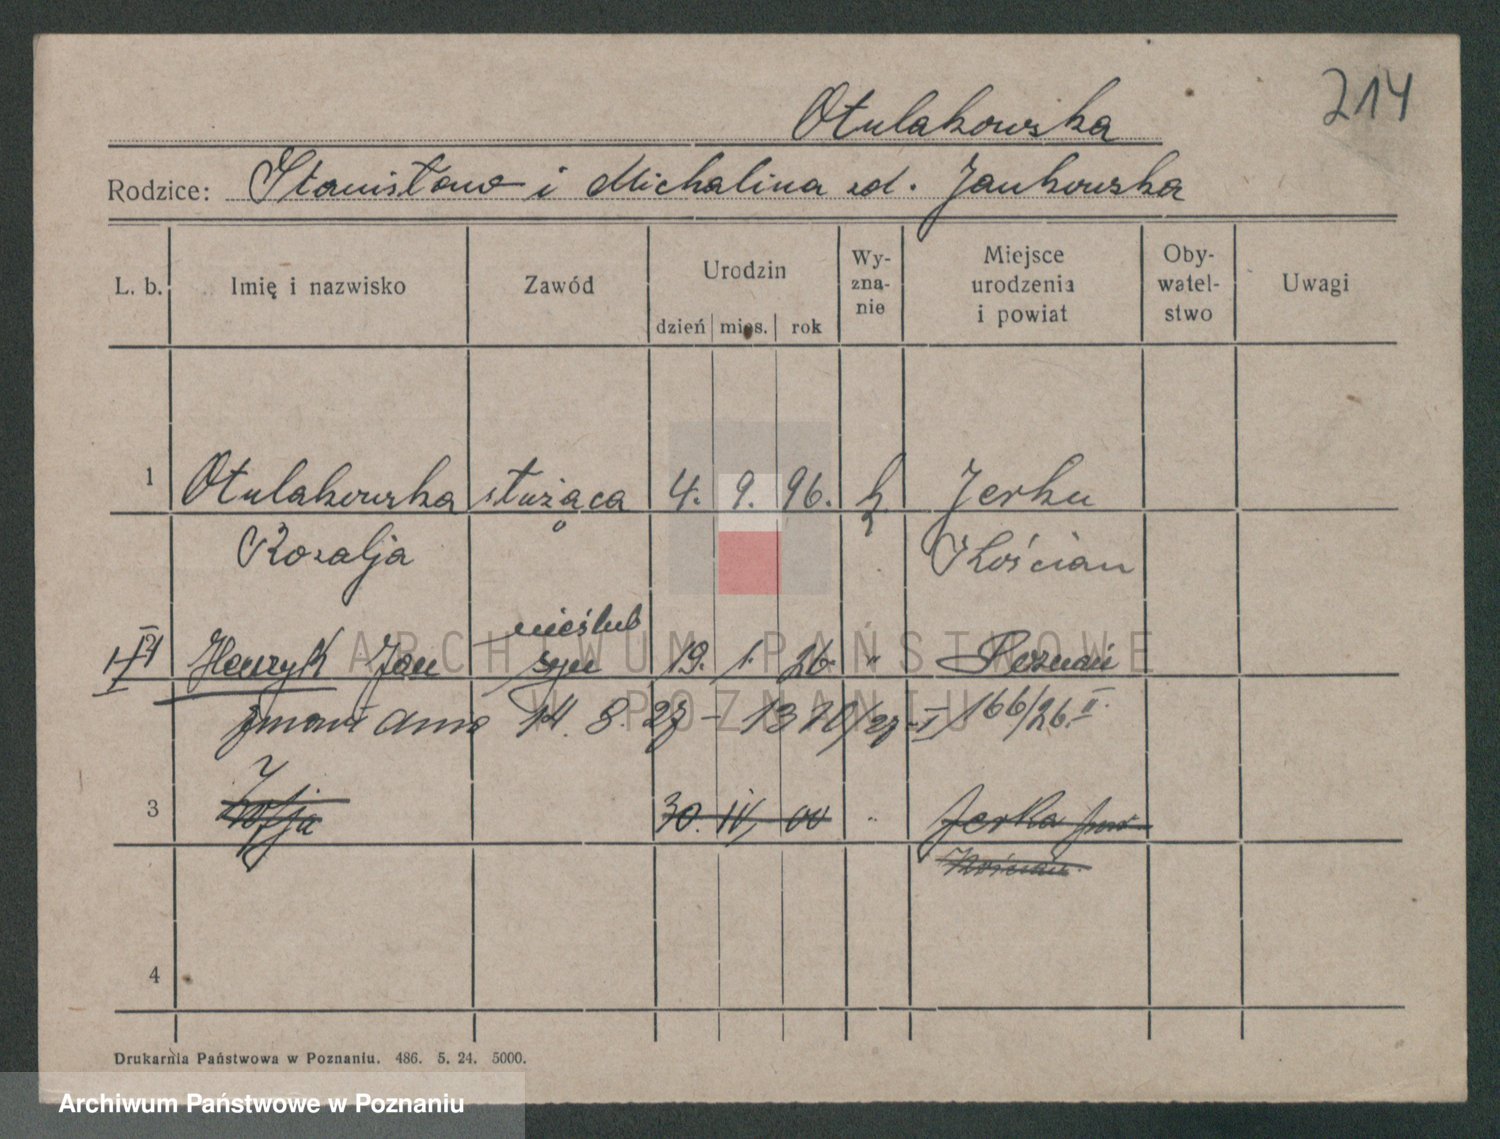 214
Otulakowska
Rodzice: Stanisław i Michalina zd. Jankowska
L. b. Imię i nazwisko Zawód Urodzin Wy-zna-nie Miejsce urodzenia i powiat Oby-watel-stwo Uwagi
dzień mies. rok
1 Otulakowska służąca 4. 9. 96. Jerka
Rozalja Kościan
nieślub
Henryk Jan syn 19. 1. 26. " Poznań
zmarł dnia 14. 8. 27 - 1370/27-I 166/26 II.
3 Zofja 30. IV, 00 " Jerka pow
Kościan
4
Drukarnia Państwowa w Poznaniu. 486. 5. 24. 5000.
ARCHIWUM PAŃSTWOWE
W POZNANIU
Archiwum Państwowe w Poznaniu